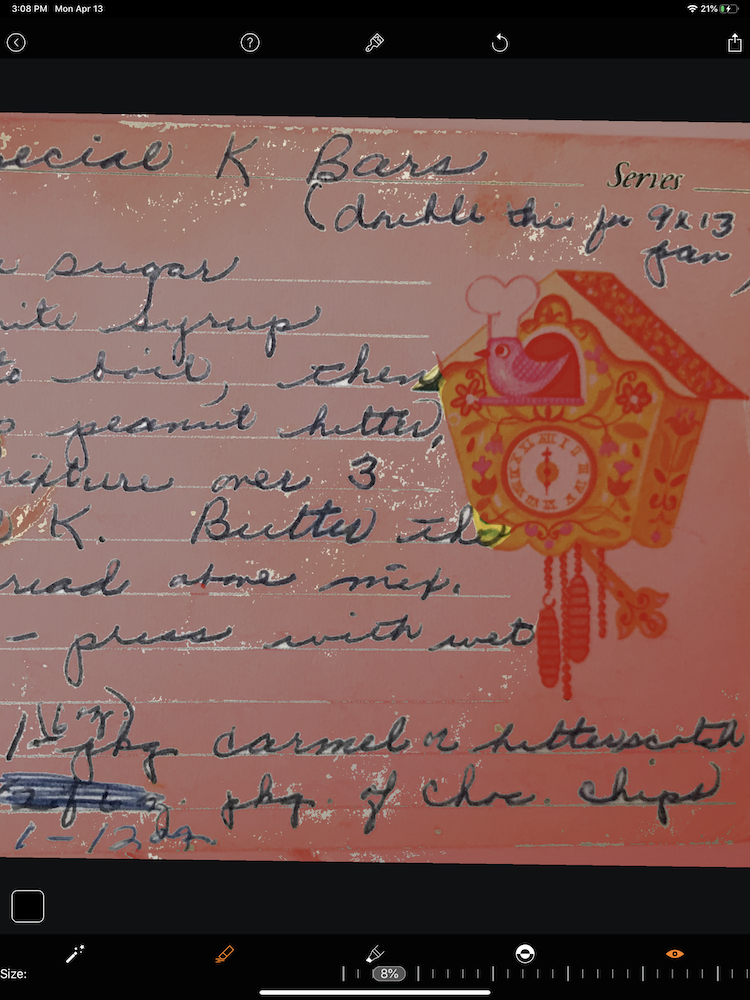 3:08 PM Mon Apr 13 21%
?
ecial K Bars
Serves
(double this for 9x13
pan)
sugar
ite syrup
to boil, then
peanut butter,
ixture over 3
K. Butter the
read above mix.
- press with wet
(6 oz)
1- pkg carmel or butterscotch
pkg. of choc. chips
1-12 oz
Size: 8%